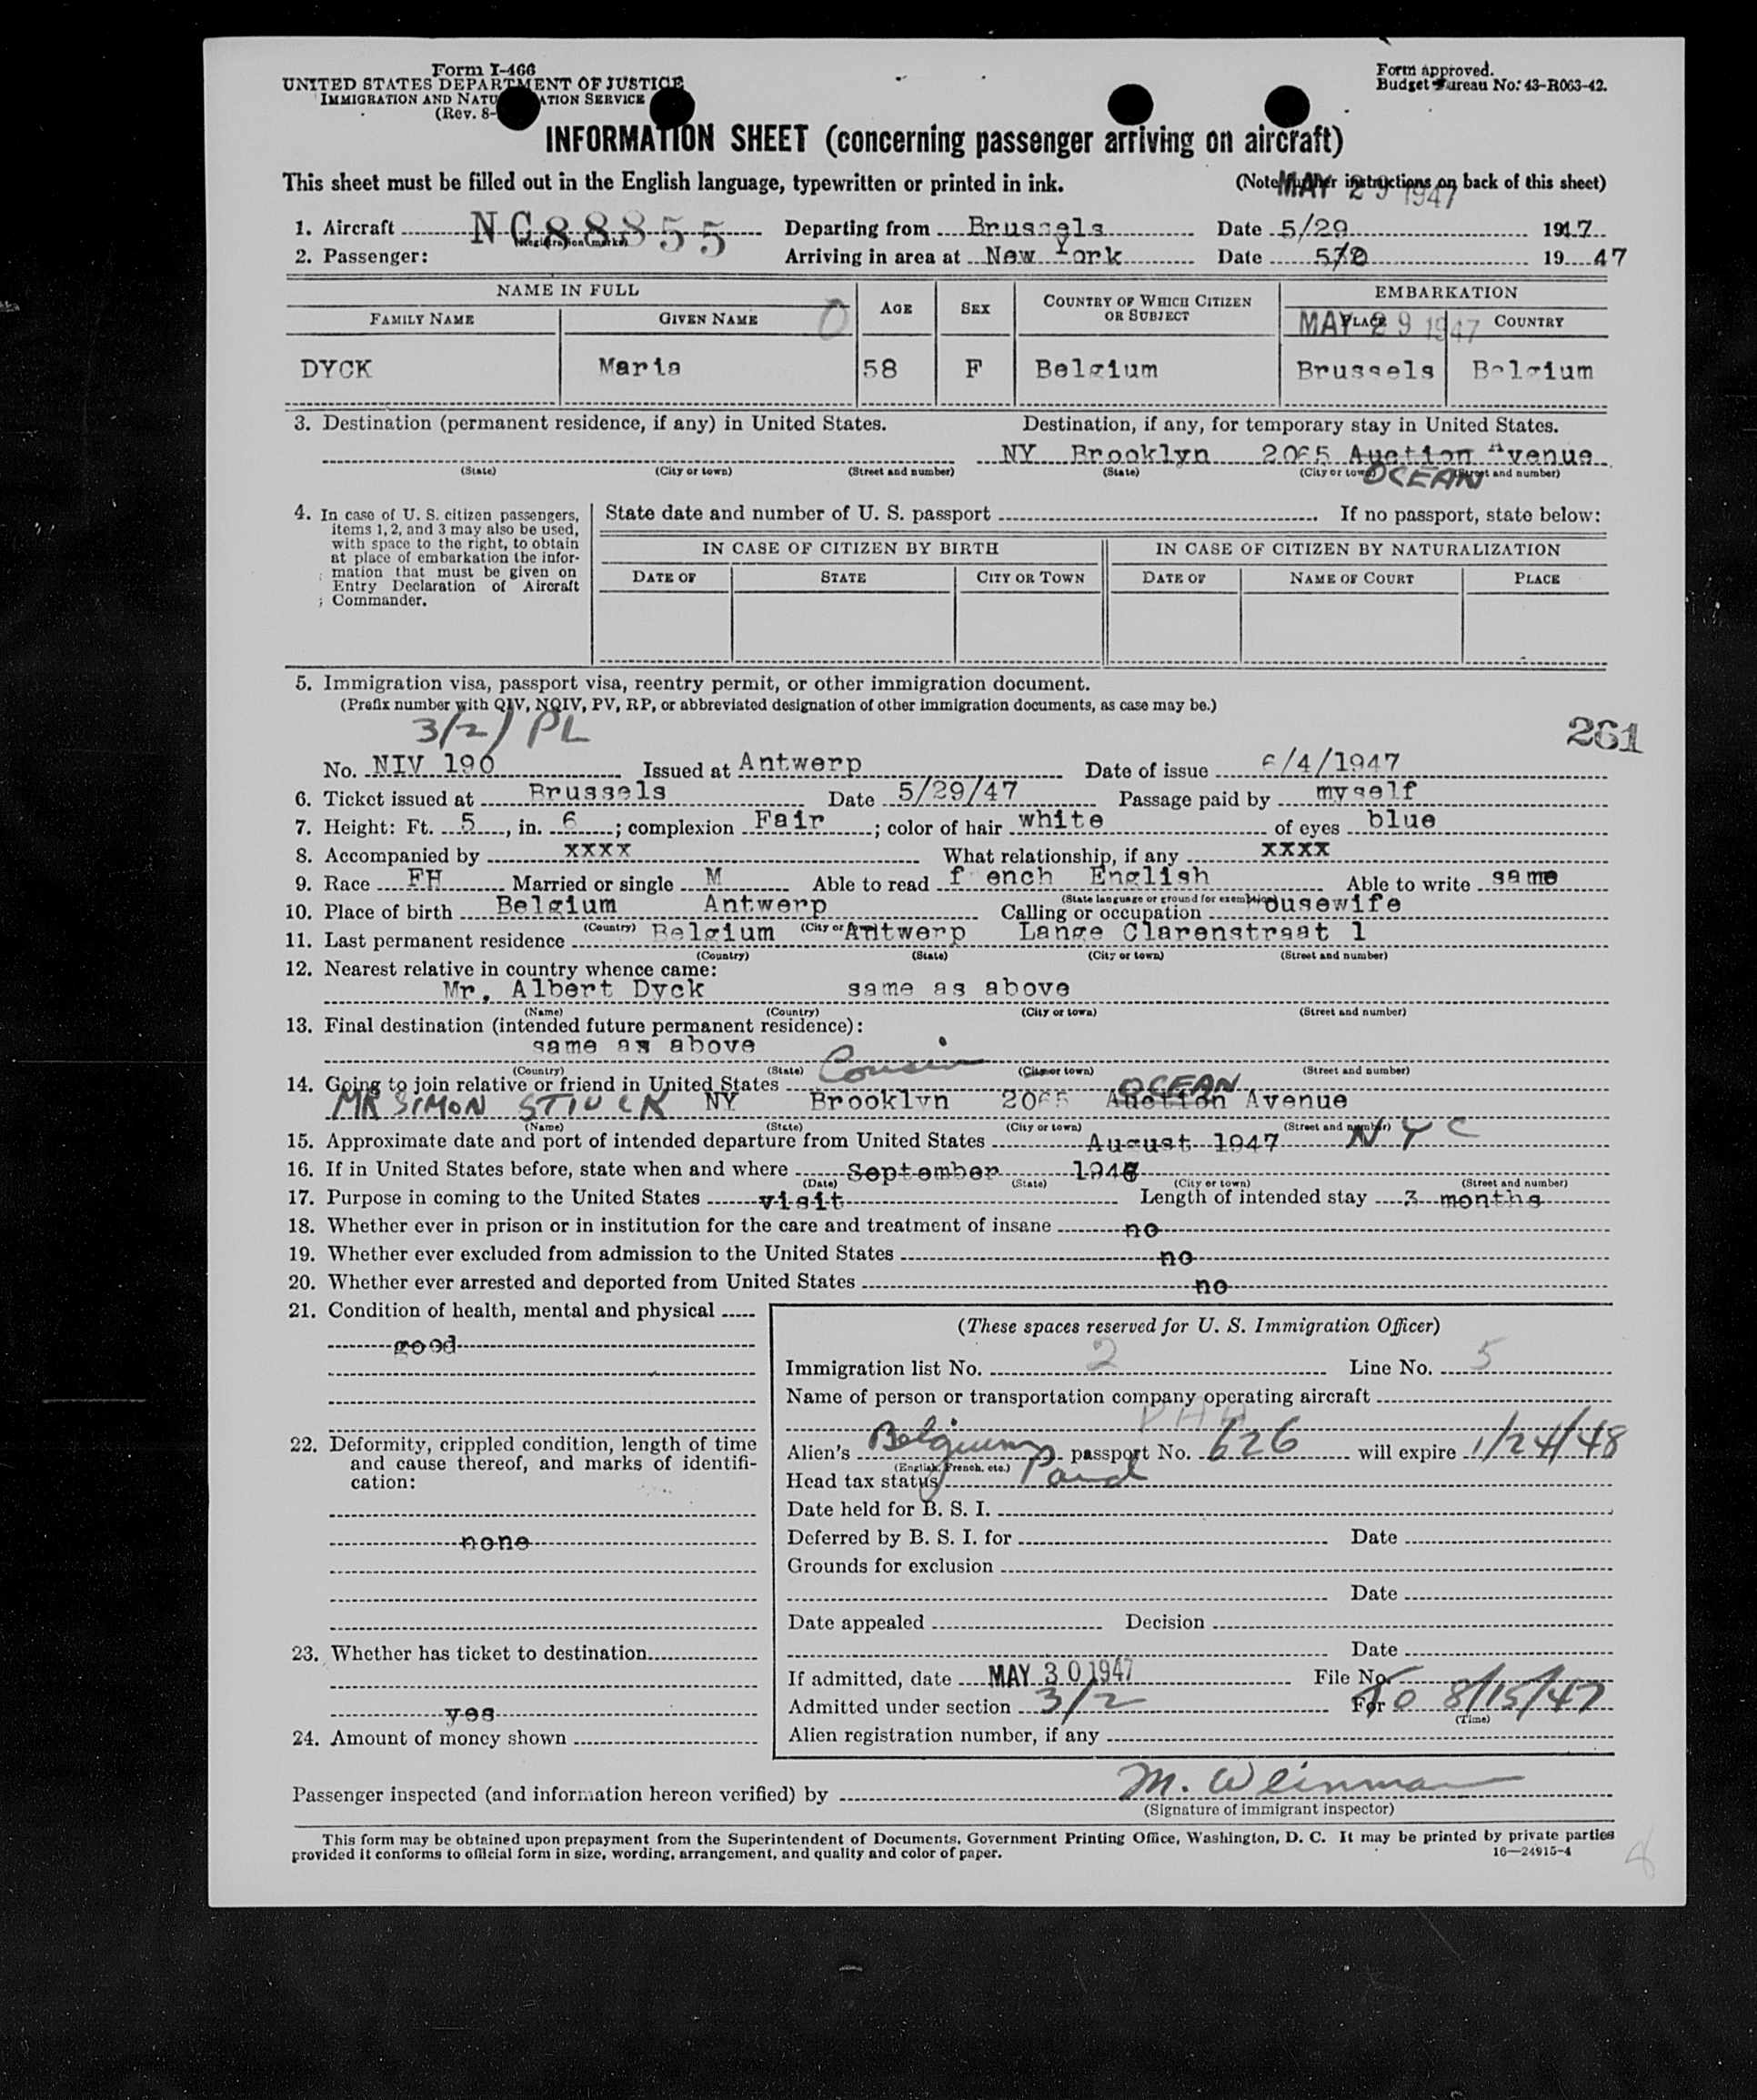 Form I-466
UNITED STATES DEPARTMENT OF JUSTICE
IMMIGRATION AND NATU ATION SERVICE
(Rev. 8-
Form approved.
Budget Bureau No. 43-R063-42.
INFORMATION SHEET (concerning passenger arriving on aircraft)
This sheet must be filled out in the English language, typewritten or printed in ink.
(Note further instructions on back of this sheet)
MAY 29 1947
1. Aircraft NC88855 Departing from Brussels Date 5/29 1947
(Registration marks)
2. Passenger: Arriving in area at New York Date 19 47
NAME IN FULL AGE SEX COUNTRY OF WHICH CITIZEN OR SUBJECT EMBARKATION
FAMILY NAME GIVEN NAME 0 PLACE COUNTRY
MAY 29 1947
DYCK Maria 58 F Belgium Brussels Belgium
3. Destination (permanent residence, if any) in United States. Destination, if any, for temporary stay in United States.
NY Brooklyn 2065 Auction Avenue
(State) (City or town) (Street and number) (State) (City or town) (Street and number)
OCEAN
4. In case of U. S. citizen passengers,
items 1, 2, and 3 may also be used,
with space to the right, to obtain
at place of embarkation the infor-
mation that must be given on
Entry Declaration of Aircraft
Commander.
State date and number of U. S. passport If no passport, state below:
IN CASE OF CITIZEN BY BIRTH IN CASE OF CITIZEN BY NATURALIZATION
DATE OF STATE CITY OR TOWN DATE OF NAME OF COURT PLACE
5. Immigration visa, passport visa, reentry permit, or other immigration document.
(Prefix number with QIV, NQIV, PV, RP, or abbreviated designation of other immigration documents, as case may be.)
3/2) PL
261
No. NIV 190 Issued at Antwerp Date of issue 6/4/1947
6. Ticket issued at Brussels Date 5/29/47 Passage paid by myself
7. Height: Ft. 5, in. 6; complexion Fair; color of hair white of eyes blue
8. Accompanied by xxxx What relationship, if any xxxx
9. Race FH Married or single M Able to read f ench English Able to write same
(State language or ground for exemption)
10. Place of birth Belgium Antwerp Calling or occupation Housewife
(Country) (City or town)
11. Last permanent residence Belgium Antwerp Lange Clarenstraat 1
(Country) (State) (City or town) (Street and number)
12. Nearest relative in country whence came:
Mr. Albert Dyck same as above
(Name) (Country) (City or town) (Street and number)
13. Final destination (intended future permanent residence):
same as above
(Country) (State) (City or town) (Street and number)
14. Going to join relative or friend in United States Cousin
OCEAN
MR SIMON STIUCK NY Brooklyn 2065 Auction Avenue
(Name) (State) (City or town) (Street and number)
15. Approximate date and port of intended departure from United States August 1947 NYC
16. If in United States before, state when and where September 1946
(Date) (State) (City or town) (Street and number)
17. Purpose in coming to the United States visit Length of intended stay 3 months
18. Whether ever in prison or in institution for the care and treatment of insane no
19. Whether ever excluded from admission to the United States no
20. Whether ever arrested and deported from United States no
21. Condition of health, mental and physical
good
22. Deformity, crippled condition, length of time
and cause thereof, and marks of identifi-
cation:
none
23. Whether has ticket to destination
yes
24. Amount of money shown
(These spaces reserved for U. S. Immigration Officer)
Immigration list No. 2 Line No. 5
Name of person or transportation company operating aircraft
PAA
Alien's Belgium passport No. 626 will expire 1/24/48
(English, French, etc.)
Head tax status Paid
Date held for B. S. I.
Deferred by B. S. I. for Date
Grounds for exclusion
Date
Date appealed Decision
Date
If admitted, date MAY 30 1947 File No.
Admitted under section 3/2 For TO 8/15/47
(Time)
Alien registration number, if any
Passenger inspected (and information hereon verified) by M. Weinman
(Signature of immigrant inspector)
This form may be obtained upon prepayment from the Superintendent of Documents, Government Printing Office, Washington, D. C. It may be printed by private parties
provided it conforms to official form in size, wording, arrangement, and quality and color of paper.
16—24915-4
8